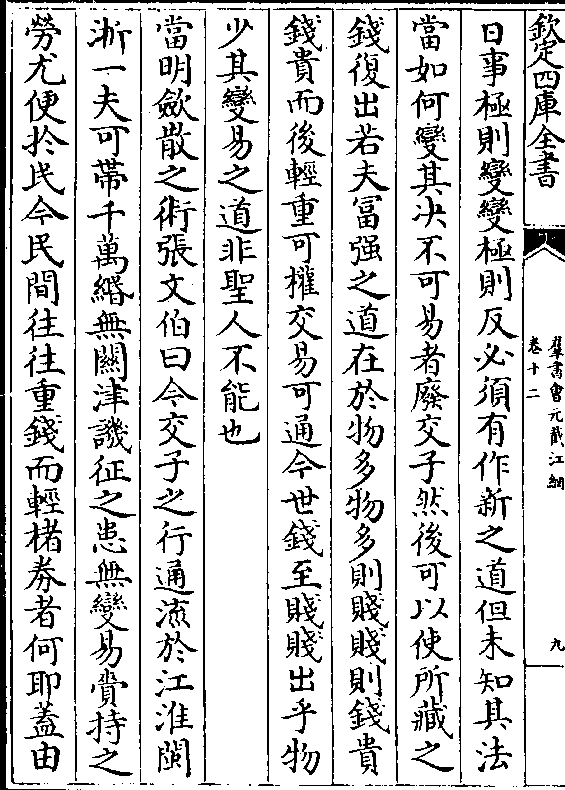 欽定四庫全書
羣書會元截江網
卷十二
九
日事極則變變極則反必須有作新之道但未知其法
當如何變其決不可易者廢交子然後可以使所藏之
錢復出若夫富强之道在於物多物多則賤賤則錢貴
錢貴而後輕重可權交易可通今世錢至賤賤出乎物
少其變易之道非聖人不能也
當明斂散之術張文伯曰今交子之行通流於江淮閩
浙一夫可帶千萬緡無關津譏征之患無變易賫持之
勞尤便扵民今民間往往重錢而輕楮劵者何耶蓋由